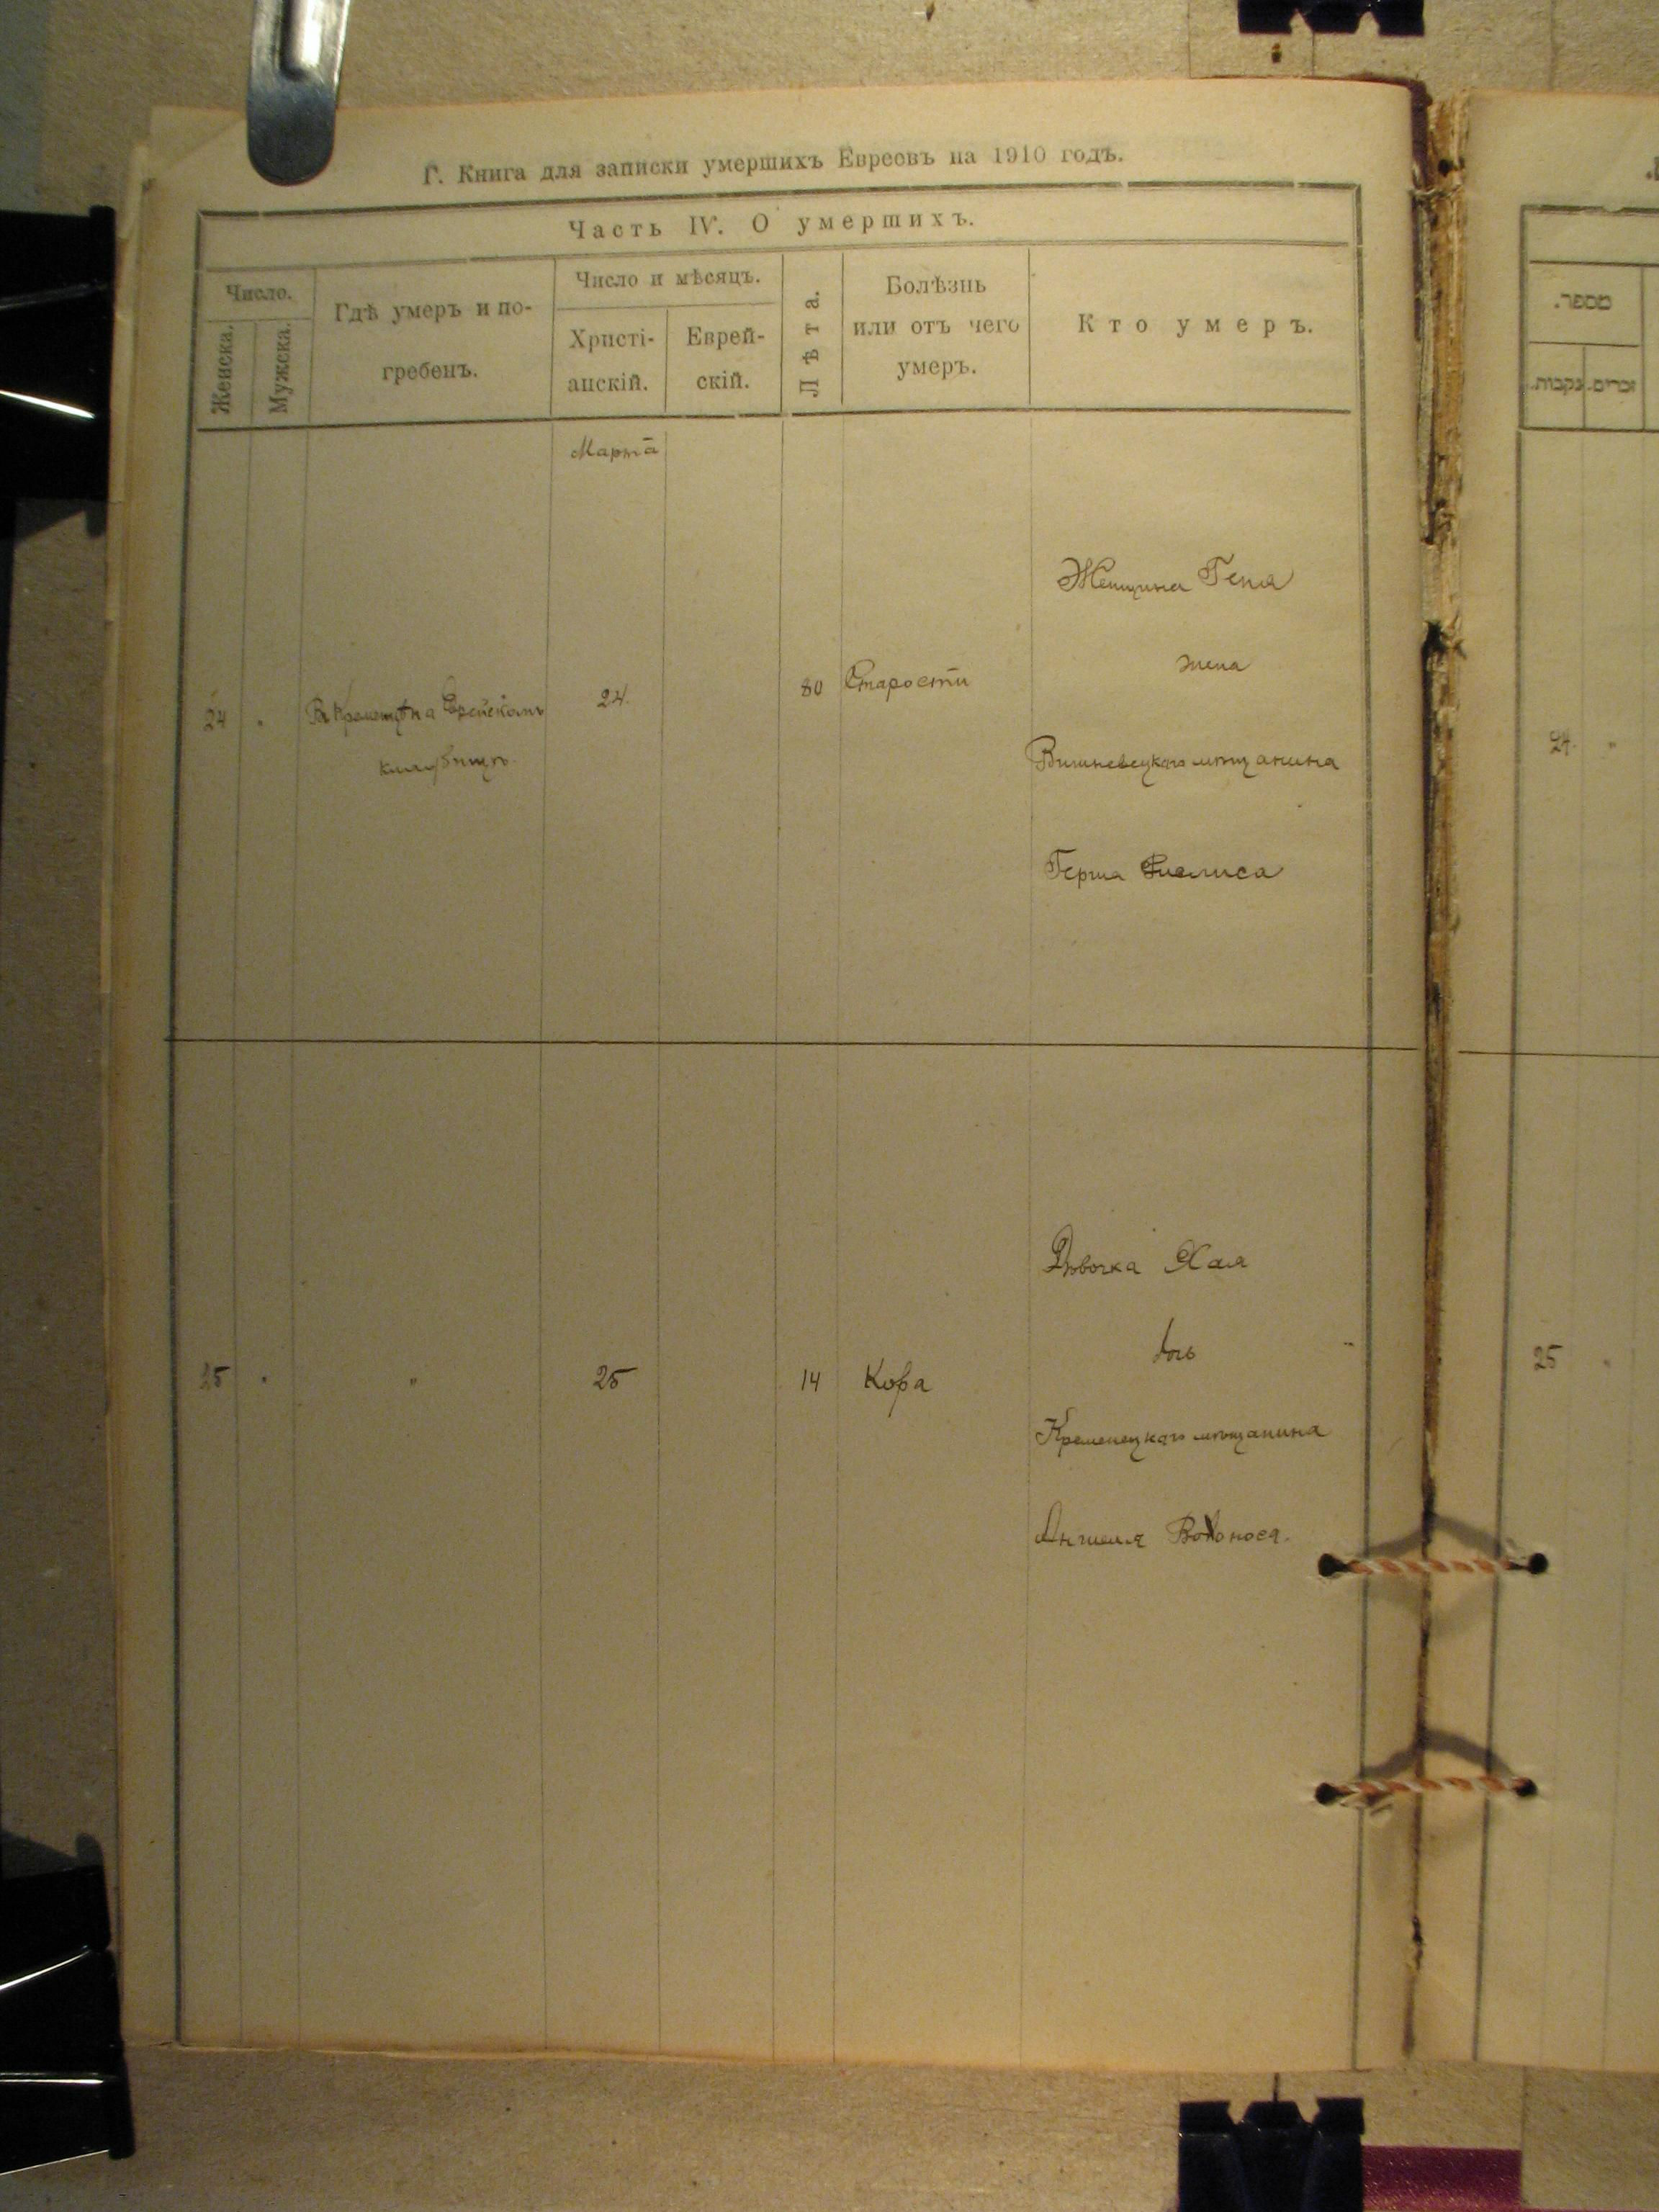 Г. Книга для записки умершихъ Евреевъ на 1910 годъ.
Часть IV. О умершихъ.
Число.
Женска.
Мужска.
Гдѣ умеръ и по-
гребенъ.
Число и мѣсяцъ.
Христі-
анскій.
Еврей-
скій.
Лѣта.
Болѣзнь
или отъ чего
умеръ.
Кто умеръ.
Марта
24 " Въ Кременцѣ на Еврейскомъ
кладбищѣ.
24.
80
Старости
Женщина Гепя
жена
Вишневецкаго мѣщанина
Герша
25 " " 25 14 Кора
Дѣвочка Хая
дочь
Кременецкаго мѣщанина
Аншеля Водоноса.
מספר.
זכרים.
נקבות.
24. "
25 "